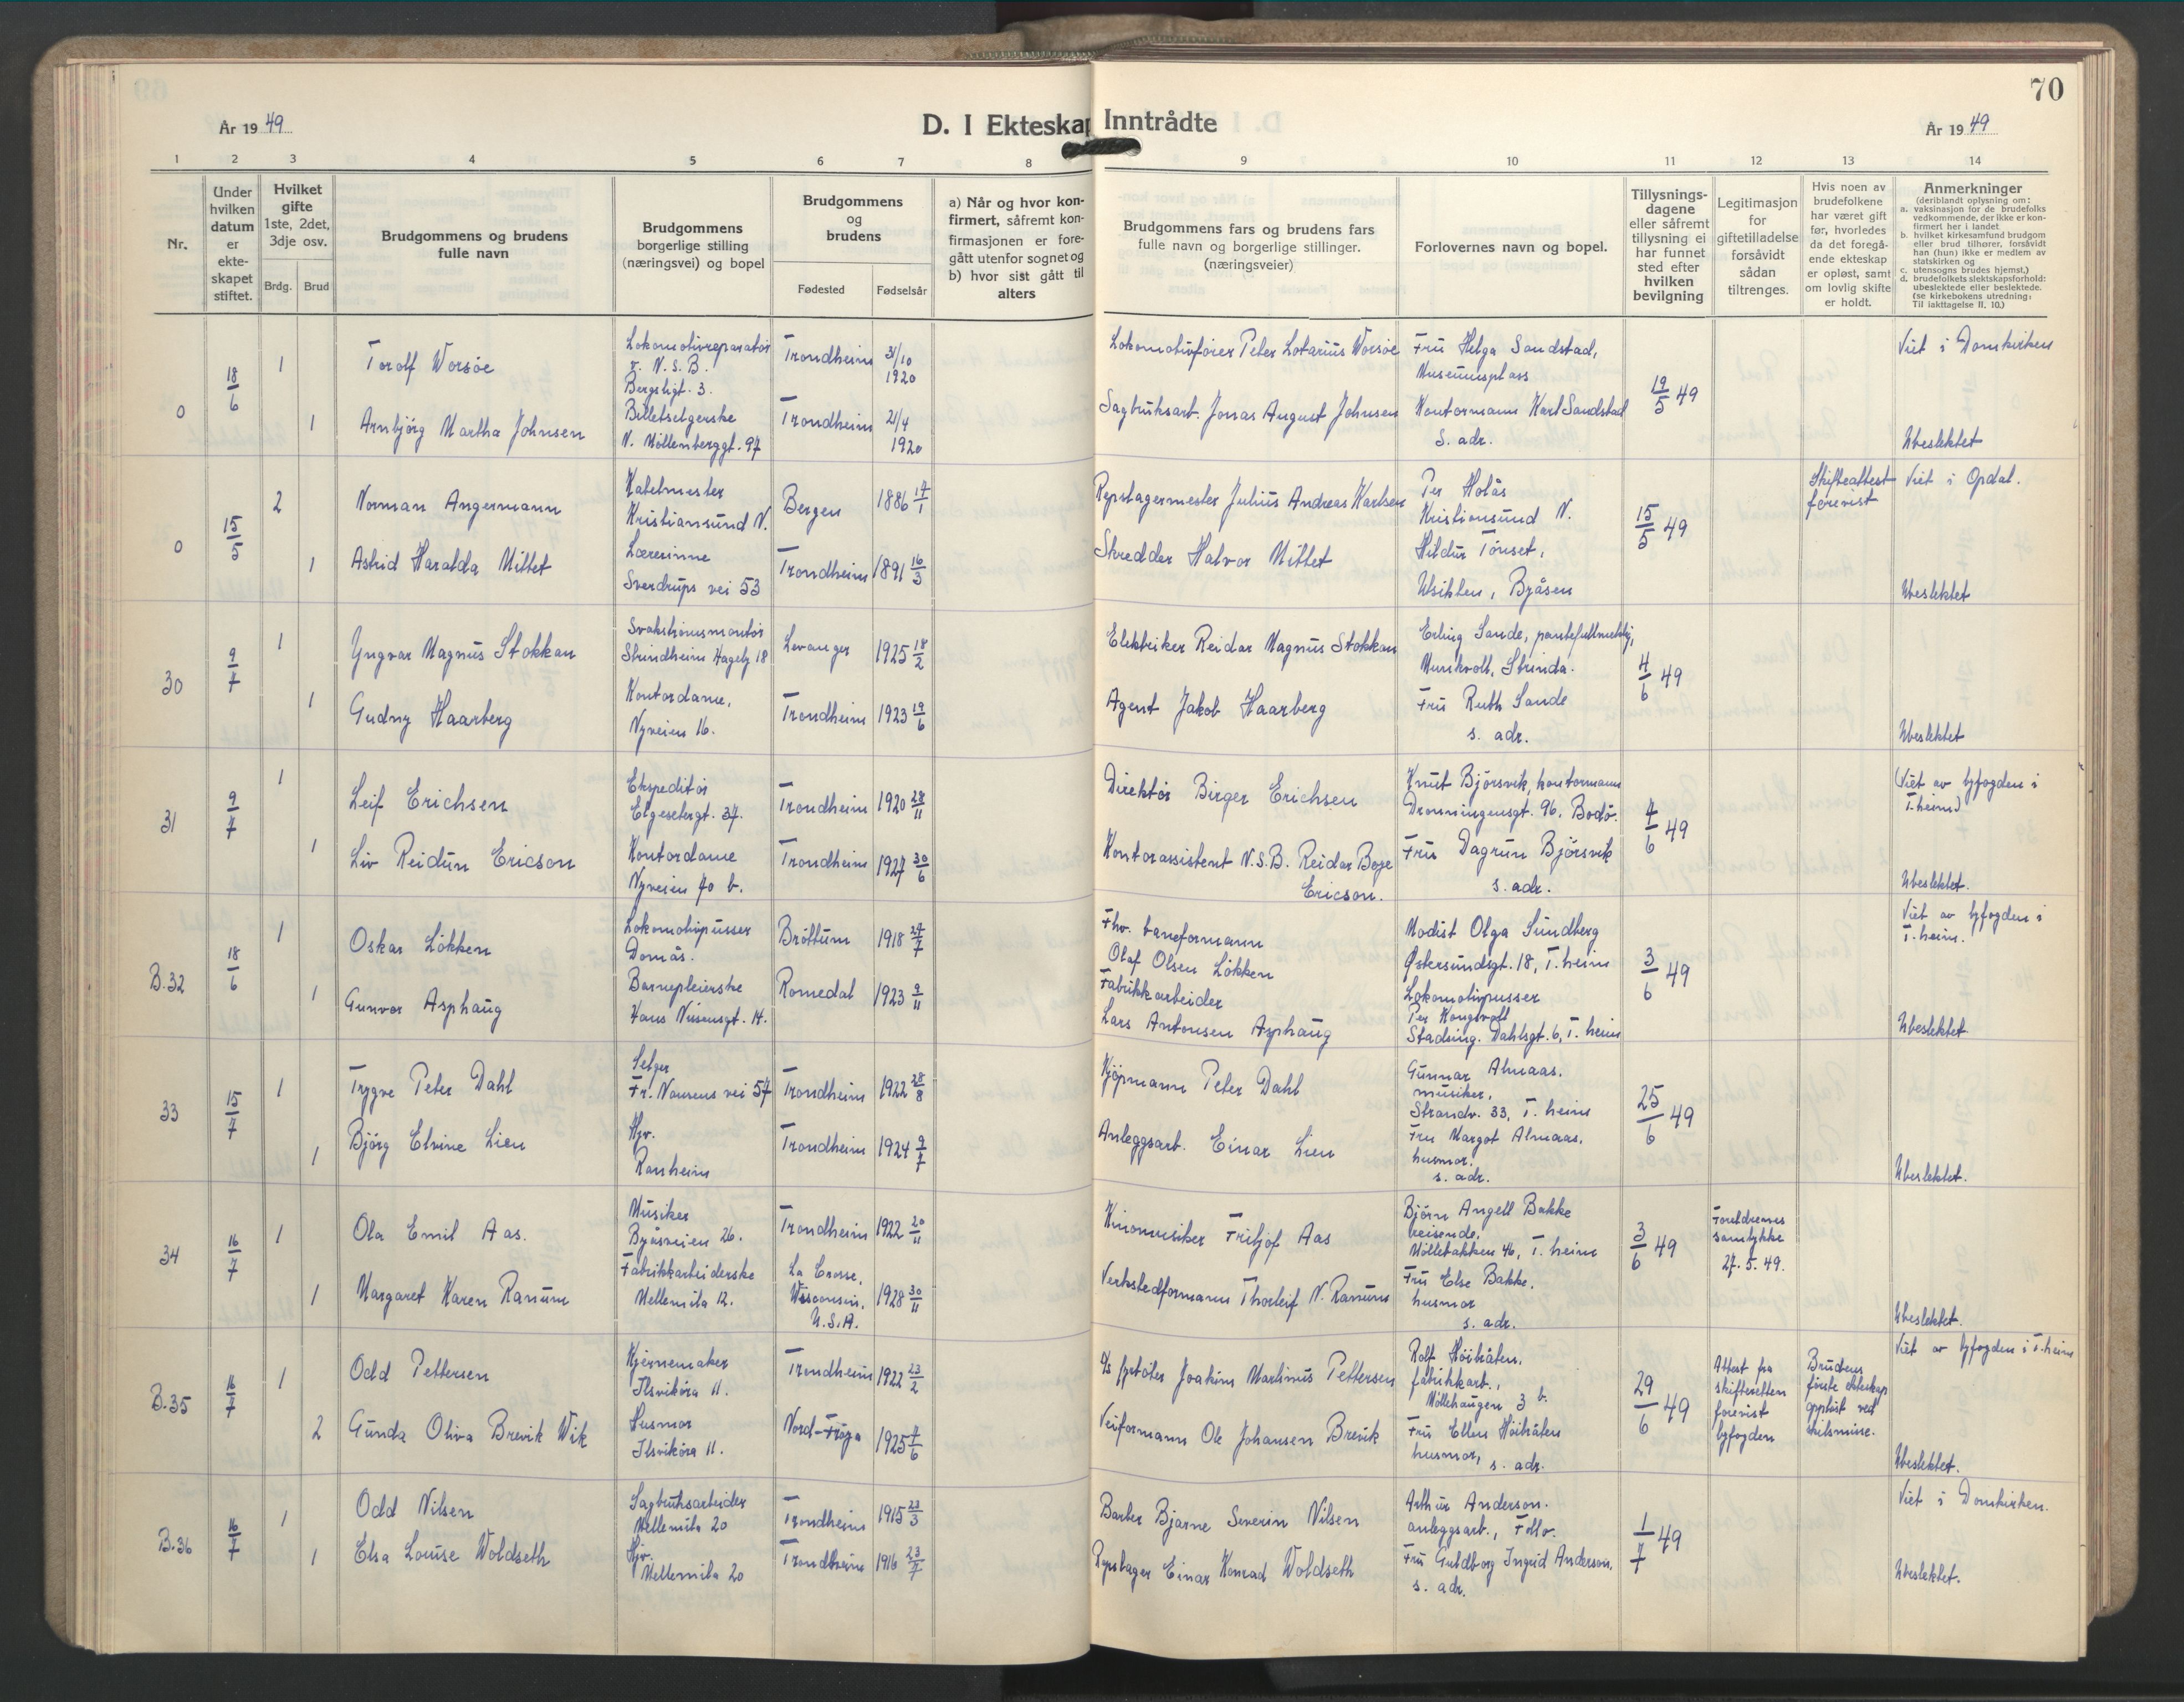 70
År 1949
D. I Ekteskap Inntrådte
År 1949
1 2 3 4 5 6 7 8 9 10 11 12 13 14
Nr.
Under hvilken datum er ekte-skapet stiftet.
Hvilket gifte
1ste, 2det, 3dje osv.
Brdg. Brud
Brudgommens og brudens
fulle navn
Brudgommens
borgerlige stilling
(næringsvei) og bopel
Brudgommens
og
brudens
Fødested Fødselsår
a) Når og hvor kon-
firmert, såfremt kon-
firmasjonen er fore-
gått utenfor sognet og
b) hvor sist gått til
alters
Brudgommens fars og brudens fars
fulle navn og borgerlige stillinger.
(næringsveier)
Forlovernes navn og bopel.
Tillysnings-
dagene
eller såfremt
tillysning ei
har funnet
sted efter
hvilken
bevilgning
Legitimasjon
for
giftetilladelse
forsåvidt
sådan
tiltrenges.
Hvis noen av
brudefolkene
har været gift
før, hvorledes
da det foregå-
ende ekteskap
er opløst, samt
om lovlig skifte
er holdt.
Anmerkninger
(deriblandt oplysning om:
a. vaksinasjon for de brudefolks
vedkommende, der ikke er kon-
firmert her i landet
b. hvilket kirkesamfund brudgom
eller brud tilhører, forsåvidt
han (hun) ikke er medlem av
statskirken og
c. utensogns brudes hjemst.)
d. brudefolkets slektskapsforhold:
ubeslektede eller beslektede.
(se kirkebokens utredning:
Til iakttagelse II, 10.)
0 18/6 1 Torolf Worsøe
Lokomotivreparatør
v. N.S.B.
Bergsligt. 3.
Trondheim 31/10 1920
Lokomotivfører Peter Lotarius Worsøe
Fru Helga Sandstad,
Museumsplass
19/5 49
Viet i Domkirken
1 Arnbjörg Martha Johnsen
Billetselgerske
N. Möllenberggt. 97
Trondheim 21/4 1920
Sagbruksarb. Jonas August Johnsen
Kontormann Karl Sandstad
s. adr.
Ubeslektet
0 15/5 2 Norman Angermann
Kabelmester
Kristiansund N.
Bergen 1886 17/1
Repslagermester Julius Andreas Karlsen
Per Holås
Kristiansund N.
15/5 49
Skifteattest
forevist
Viet i Opdal.
1 Astrid Haralda Mittet
Lærerinne
Sverdrups vei 53
Trondheim 1891 16/3
Skredder Halvor Mittet
Hildur Tønset,
Utsikten, Byåsen
Ubeslektet
30 9/7 1 Yngvar Magnus Stokkan
Svakstrømsmontør
Strindheim Hageby 18
Levanger 1925 18/2
Elektriker Reidar Magnus Stokkan
Erling Sande, pantefullmektig,
Munkvoll, Strinda.
4/6 49
1 Gudny Haarberg
Kontordame,
Nyveien 16.
Trondheim 1923 19/6
Agent Jakob Haarberg
Fru Ruth Sande
s. adr.
Ubeslektet
31 9/7 1 Leif Erichsen
Ekspeditør
Elgesetergt. 37.
Trondheim 1920 28/11
Direktør Birger Erichsen
Knut Bjørsvik, kontormann
Dronningensgt. 96, Bodö.
4/6 49
(Viet av byfogden i
T.heim)
1 Liv Reidun Ericson
Kontordame
Nyveien 70 b.
Trondheim 1927 30/6
Kontorassistent N.S.B. Reidar Boye
Ericson.
Fru Dagrun Björsvik
s. adr.
Ubeslektet.
B.32 18/6 1 Oskar Lökken
Lokomotivpusser
Domås.
Bröttum 1918 27/7
Fhv. baneformann
Olaf Olsen Lökken
Modist Olga Sundberg
Østersundsgt. 18, T.heim
3/6 49
Viet av byfogden i
T.heim.
1 Gunvor Asphaug
Barnepleierske
Hans Nissensgt. 14.
Romedal 1923 9/11
Fabrikkarbeider
Lars Antonsen Asphaug
Lokomotivpusser
Per Kongsvoll
Stadsing. Dahlsgt. 6, T.heim
Ubeslektet
33 15/7 1 Trygve Peter Dahl
Selger
Fr. Nansens vei 57
Trondheim 1922 28/8
Kjøpmann Peter Dahl
Gunnar Almaas.
musiker,
Strandv. 33, T.heim
25/6 49
1 Björg Elvine Lien
Hjv.
Ranheim
Trondheim 1924 9/7
Anleggsarb. Einar Lien
Fru Margot Almaas.
husmor,
s. adr.
Ubeslektet.
34 16/7 1 Ola Emil Aas.
Musiker
Byåsveien 26.
Trondheim 1922 20/11
Kinomusiker Fritjof Aas
Björn Angell Bakke
reisende,
Möllebakken 46, T.heim
3/6 49
Foreldrenes
samtykke
27.5.49.
1 Margaret Karen Ranum
Fabrikkarbeiderske
Mellemila 12.
La Crosse,
Wisconsin,
U.S.A.
1928 30/11
Verkstedformann Thorleif N. Ranum
Fru Else Bakke,
husmor
s. adr.
Ubeslektet.
B.35 16/7 1 Odd Pettersen
Kjernemaker
Ilsvikøra 11.
Trondheim 1922 23/2
fyrbøter Joakim Martinus Pettersen
Rolf Høibråten,
fabrikkarb.,
Möllehaugen 3 b.
29/6 49
Attest fra
skifteretten
forevist
byfogden
Brudens
første ekteskap
oppløst ved
skilsmisse.
Viet av byfogden i T.heim
2 Gunda Oliva Brevik Wik
Husmor
Ilsvikøra 11.
Nord-Frøya 1925 7/6
Veiformann Ole Johansen Brevik
Fru Ellen Höibråten
husmor, s. adr.
Ubeslektet.
B.36 16/7 1 Odd Nilsen
Sagbruksarbeider
Mellemila 20
Trondheim 1915 23/3
Barber Bjarne Severin Nilsen
Arthur Anderson.
anleggsarb., Follo.
1/7 49
Viet i Domkirken.
1 Elsa Louise Woldseth
Hjv.
Mellemila 20
Trondheim 1916 23/7
Repslager Einar Konrad Woldseth
Fru Guldborg Ingrid Anderson,
s. adr.
Ubeslektet.